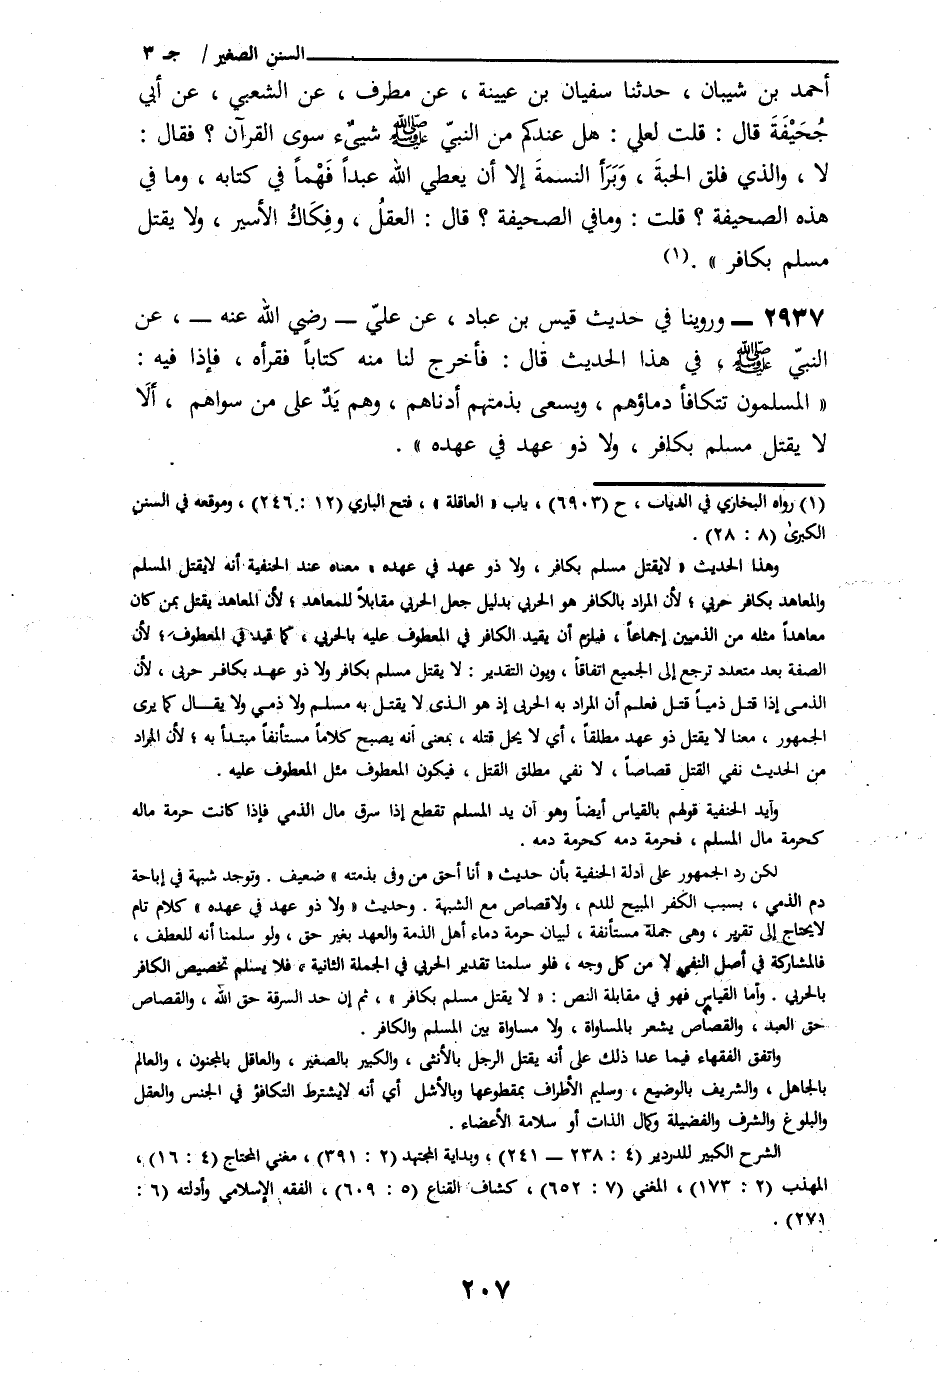 السنن الصغير / جـ ٣
أحمد بن شيبان ، حدثنا سفيان بن عيينة ، عن مطرف ، عن الشعبي ، عن أبي
جُحَيْفَةَ قال : قلت لعلي : هل عندكم من النبيّ ﷺ شييٌء سوى القرآن ؟ فقال :
لا ، والذي فلق الحبة ، وَبَرَأ النسمةَ إلا أن يعطي الله عبداً فَهْماً في كتابه ، وما في
هذه الصحيفة ؟ قلت : ومافي الصحيفة ؟ قال : العقلُ ، وفِكَاكُ الأسير ، ولا يقتل
مسلم بكافر » .(١)
٢٩٣٧ ــ وروينا في حديث قيس بن عباد ، عن عليّ ــ رضي الله عنه ــ ، عن
النبيّ ﷺ ، في هذا الحديث قال : فأخرج لنا منه كتاباً فقرأه ، فإذا فيه :
« المسلمون تتكافأ دماؤهم ، ويسعى بذمتهم أدناهم ، وهم يَدٌ على من سواهم ، ألَا
لا يقتل مسلم بكافر ، ولا ذو عهد في عهده » .
(١) رواه البخاري في الديات ، ح (٦٩٠٣) ، باب « العاقلة » ، فتح الباري (١٢ : ٢٤٦) ، وموقعه في السنن
الكبرىٰ (٨ : ٢٨) .
وهذا الحديث « لايقتل مسلم بكافر ، ولا ذو عهد في عهده » معناه عند الحنفية أنه لايقتل المسلم
والمعاهد بكافر حربي ؛ لأن المراد بالكافر هو الحربي بدليل جعل الحربي مقابلاً للمعاهد ؛ لأن المعاهد يقتل بمن كان
معاهداً مثله من الذميين إجماعاً ، فيلزم أن يقيد الكافر في المعطوف عليه بالحربي ، كما قيد في المعطوف ؛ لأن
الصفة بعد متعدد ترجع إلى الجميع اتفاقاً ، ويون التقدير : لا يقتل مسلم بكافر ولا ذو عهد بكافر حربى ، لأن
الذمى إذا قتل ذمياً قتل فعلم أن المراد به الحربى إذ هو الذى لا يقتل به مسلم ولا ذمي ولا يقال كما يرى
الجمهور ، معنا لا يقتل ذو عهد مطلقاً ، أي لا يحل قتله ، بمعنى أنه يصبح كلاماً مستأنفاً مبتدأ به ؛ لأن المراد
من الحديث نفي القتل قصاصاً ، لا نفي مطلق القتل ، فيكون المعطوف مثل المعطوف عليه .
وآيد الحنفية قولهم بالقياس أيضاً وهو أن يد المسلم تقطع إذا سرق مال الذمي فإذا كانت حرمة ماله
كحرمة مال المسلم ، فحرمة دمه كحرمة دمه .
لكن رد الجمهور على أدلة الحنفية بأن حديث « أنا أحق من وفى بذمته » ضعيف . وتوجد شبهة في إباحة
دم الذمي ، بسبب الكفر المبيح للدم ، ولاقصاص مع الشبهة . وحديث « ولا ذو عهد في عهده » كلام تام
لايحتاج إلى تقرير ، وهى جملة مستأنفة ، لبيان حرمة دماء أهل الذمة والعهد بغير حق ، ولو سلمنا أنه للعطف ،
فالمشاركة في أصل النفي لا من كل وجه ، فلو سلمنا تقدير الحربي في الجملة الثانية ، فلا يسلم تخصيص الكافر
بالحربي . وأما القياس فهو في مقابلة النص : « لا يقتل مسلم بكافر » ، ثم إن حد السرقة حق الله ، والقصاص
حق العبد ، والقصاص يشعر بالمساواة ، ولا مساواة بين المسلم والكافر .
واتفق الفقهاء فيما عدا ذلك على أنه يقتل الرجل بالأنثى ، والكبير بالصغير ، والعاقل بالمجنون ، والعالم
بالجاهل ، والشريف بالوضيع ، وسليم الأطراف بمقطوعها وبالأشل أي أنه لايشترط التكافؤ في الجنس والعقل
والبلوغ والشرف والفضيلة وكمال الذات أو سلامة الأعضاء .
الشرح الكبير للدردير (٤ : ٢٣٨ ــ ٢٤١) ، وبداية المجتهد (٢ : ٣٩١) ، مغني المحتاج (٤ : ١٦) ،
المهذب (٢ : ١٧٣) ، المغني (٧ : ٦٥٢) ، كشاف القناع (٥ : ٦٠٩) ، الفقه الإسلامي وأدلته (٦ :
٢٧١) .
٢٠٧